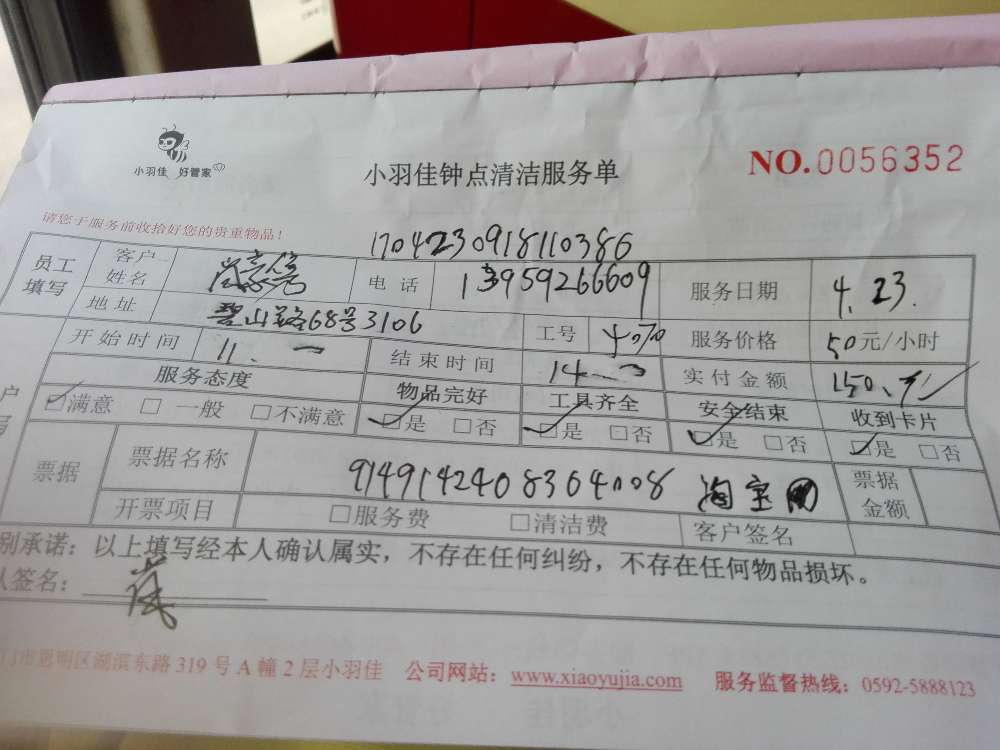 小羽佳 好管家
小羽佳钟点清洁服务单
NO.0056352
请您于服务前收拾好您的贵重物品！
1704230918110386
员工填写 客户姓名 电话 13959266609 服务日期 4.23.
地址 碧山路68号3106 工号 服务价格 50元/小时
开始时间 11. 结束时间 14 实付金额 150.
服务态度 物品完好 工具齐全 安全结束 收到卡片
☑满意 □一般 □不满意 ☑是 □否 ☑是 □否 ☑是 □否 ☑是 □否
票据 票据名称 9149142408364008 淘宝网 票据金额
开票项目 □服务费 □清洁费 客户签名
别承诺：以上填写经本人确认属实，不存在任何纠纷，不存在任何物品损坏。
人签名：
门市思明区湖滨东路319号A幢2层小羽佳 公司网站：www.xiaoyujia.com 服务监督热线：0592-5888123